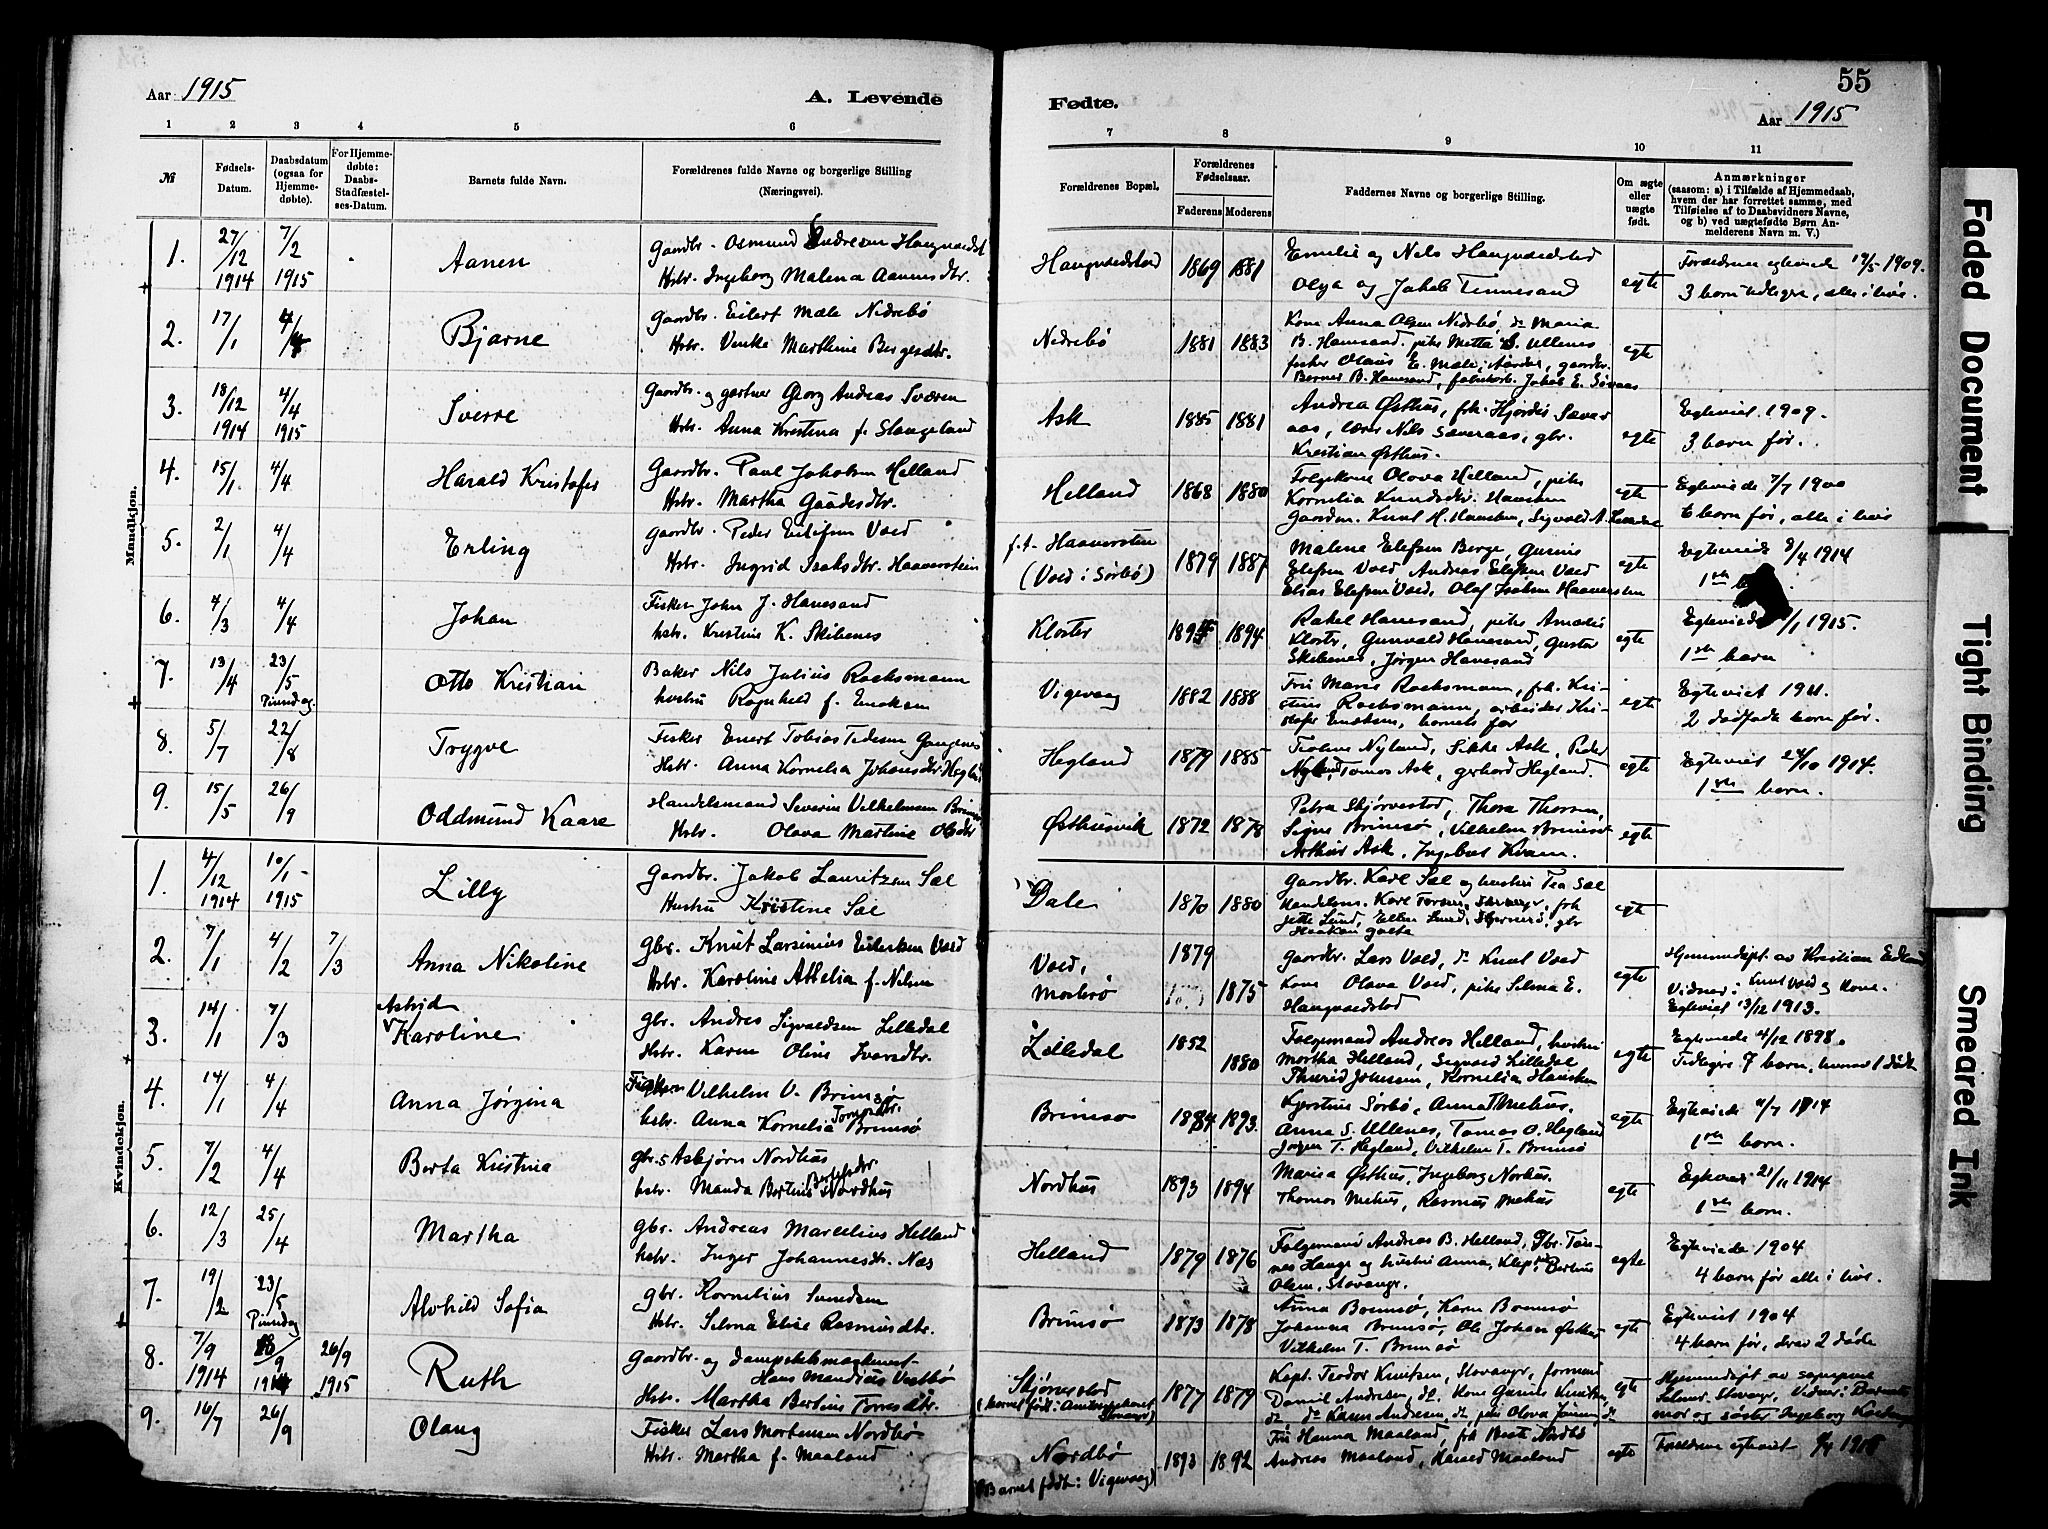 Aar 1915
A. Levende
1 2 3 4 5 6
№
Fødsels-Datum.
Daabsdatum (ogsaa for Hjemmedøbte).
For Hjemmedøbte: Daabs-Stadfæstelses-Datum.
Barnets fulde Navn.
Forældrenes fulde Navne og borgerlige Stilling
(Næringsvei).
Mandkjøn.
1. 27/12 1914 7/2 1915 Aanen
Gaardbr. Osmund Endresen Haugvaldstad
Hstr. Ingeborg Malena Aanensdtr.
2. 17/1 4/4 Bjarne
Gaardbr. Eilert Mæle Nedrebø
Hstr. Venke Marthine Bergesdtr.
3. 18/12 1914 4/4 1915 Sverre
Gaardbr. og gartner Georg Andreas Sværen
Hstr. Anna Kristina f. Slangeland
4. 15/1 4/4 Harald Kristofer
Gaardbr. Paul Jakobsen Helland
Hstr. Martha Gaadesdtr.
5. 2/1 4/4 Erling
Gaardbr. Peder Eilefsen Vold
Hstr. Ingrid Isaksdtr. Haaverstein
6. 4/3 4/4 Johan
Fisker John J. Hanesand
hstr. Kristine K. Skibenes
7. 13/4 23/5 Pinsedag. Otto Kristian
Baker Nils Julius Rocksmann
hustru Ragnhild f. Enoksen
8. 5/7 22/8 Trygve
Fisker Enert Tobias Tedesen Gangenes
Hstr. Anna Kornelia Johansdtr. Hegland
9. 15/5 26/9 Oddmund Kaare
Handelsmand Severin Vilhelmsen Brimsø
Hstr. Olava Martine Olsdtr
Kvindekjøn.
1. 4/12 1914 10/1 1915 Lilly
Gaardbr. Jakob Lauritzen Sæl
Hustru Kristine Sæl
2. 7/1 4/2 7/3 Anna Nikoline
Gbr. Knut Larsinius Eilertsen Vold
Hstr. Karoline Athelia f. Nilsen
3. 14/1 7/3 Astrid Karoline
Gbr. Andres Sigvaldsen Lilledal
Hstr. Karen Oline Ivarsdtr.
4. 14/1 4/4 Anna Jørgina
Fisker Vilhelm V. Brimsø
hstr. Anna Kornelia Tomasdtr. Brimsø
5. 7/2 4/4 Berta Kristina
gbr. Asbjørn Nordhus
hstr. Manda Bertine Nordhus
6. 12/3 25/4 Martha
gbr. Andreas Marselius Helland
hstr. Inger Johannesdtr. Næs
7. 19/2 23/5 Pinsedag Alvhild Sofia
gbr. Kornelius Svendsen
Hstr. Selma Elise Rasmusdtr.
8. 7/9 1914 18/9 1914 26/9 1915 Ruth
Gaardbr. og dampskibsmaskinist
Hans Mandius Vestbø
Hstr. Martha Bertine Torresdtr.
9. 16/7 26/9 Olaug
Fisker Lars Mortensen Nordbø
Hstr. Martha f. Maaland
55
Fødte.
Aar 1915
7 8 9 10 11
Forældrenes Bopæl.
Forældrenes Fødselsaar.
Faderens Moderens
Faddernes Navne og borgerlige Stilling.
Om ægte eller uægte født.
Anmærkninger
(saasom: a) i Tilfælde af Hjemmedaab,
hvem der har forrettet samme, med
Tilføielse af to Daabsvidners Navne,
og b) ved uægtefødte Børn Anmelderens Navn m. V.)
Haugvaldstad 1869 1881
Emelie og Nils Haugvaldstad
Olga og Jakob Tennesand
egte
Forældrene egteviede 17/5 1909.
3 barn tidligere, alle i live.
Nedrebø 1881 1883
Kone Anna Olsen Nedrebø, do Maria
B. Hanesand, pike Mette S. Ullenes
fisker Olaus E. Mæle, gaardbr.
Berner B. Hanesand, Jakob E.
egte
Ask 1885 1881
Andrea Østhus, frk. Hjørdis Sæver
aas, lærer Nils Sæveraas, gbr.
Kristian Østhus.
egte
Egteviet 1909.
3 barn før.
Helland 1868 1880
Folgekone Olava Helland, pike
Kornelia Knudsdtr. Hausken
Gaardm. Knut H. Hausken, Sigvald A.
egte
Egteviede 7/7 1900
6 barn før, alle i live
f.t. Haaverstein
(Vold i Sørbø) 1879 1887
Malene Elefsen Berge, Gurine
Elefsen Vold, Andreas Elefsen Vold
Elias Elefsen Vold, Olaf Isaksen Haaverstein
egte
Egteviede 8/4 1914
1ste
Kloster 1894
Rakel Hanesand, pike Amalie
Kloster, Gunvald Hanesand, Gustav
Skibenes, Jørgen Hanesand
egte
Egteviede /1 1915.
1ste barn
Vigevaag 1882 1888
Fru Marie Rocksmann, frk. Kri-
stine Rocksmann, arbeider Kri-
stofer Enoksen, barnets far
egte
Egteviet 1911.
2 dødfødte barn før.
Hegland 1879 1885
Teoline Nyland, Sikke Ask, Peder
Nyland, Tomas Ask, Gerhard Hegland.
egte
Egteviet 24/10 1914.
1ste barn.
Østhusvik 1872 1878
Petra Skjørvestad, Thora Thorsen,
Signe Brimsø, Vilhelm Brimsø
Arthur Ask, Ingebret Kvam.
egte
Dale 1870 1880
Gaardbr. Karl Sæl og hustru Tea Sæl
Handelsm. Karl Torsen, Stavanger, frk
Jette Lund, Ellen Lund, gbr
Haakon Galta
egte
Vold,
Mosterø 1879 1875
Gaardbr. Lars Vold, do Knut Vold
Kone Olava Vold, pike Selma E.
Haugvaldstad
egte
Hjemmedøpt av Kristian Edland
Vidner: Knut Vold og kone.
Egteviet 13/12 1913.
Lilledal 1852 1880
Folgemand Andreas Helland, hustru
Martha Helland, Sigvald Lilledal
Thurid Johnsen, Kornelia Hausken
egte
Egteviede 4/12 1898.
Tidligere 7 barn, hvorav 1 død
Brimsø 1884 1893.
Kjerstine Sørbø, Anna Mehus.
Anna S. Ullenes, Tomas O. Hegland
Jørgen T. Hegland, Vilhelm T. Brimsø
egte
Egteviede 11/7 1914
1ste barn.
Nordhus 1893 1894
Marie Østhus, Ingeborg Norhus.
Thomas Mehus, Rasmus Mehus
egte
Egteviet 21/11 1914
1ste barn.
Helland 1879 1876
Folgemand Andreas B. Helland, Gbr. Tør-
nes Hauge og hustru Anna, Klep, Bertine
Olsen, Stavanger.
egte
Egteviede 1904
4 barn før alle i live.
Brimsø 1873 1878
Anna Brimsø, Karen Brimsø
Johanna Brimsø, Ole Johan Østhus
Vilhelm T. Brimsø
egte
Egteviet 1904
4 barn før, derav 2 døde
Skjørvestad
(barnet født: Stavanger) 1877 1879
Kapt. Teodor Knutsen, Stavanger, formand
Daniel Andresen, do. Kone Gurine Knutsen,
do, do Karen Andersen, do, pike Olava Jønsen, do
egte
Hjemmedøpt av sogneprest
Selmer, Stavanger, Vidner: Barnets
mor og søster Ingeborg
Nordbø
(Barnet født: Vigevaag) 1893 1892
Fru Hanna Maaland, frk Berte Nordbø
Andreas Maaland, Harald Maaland
egte
Forældrene egteviet 1915
Faded Document
Tight Binding
Smeared Ink